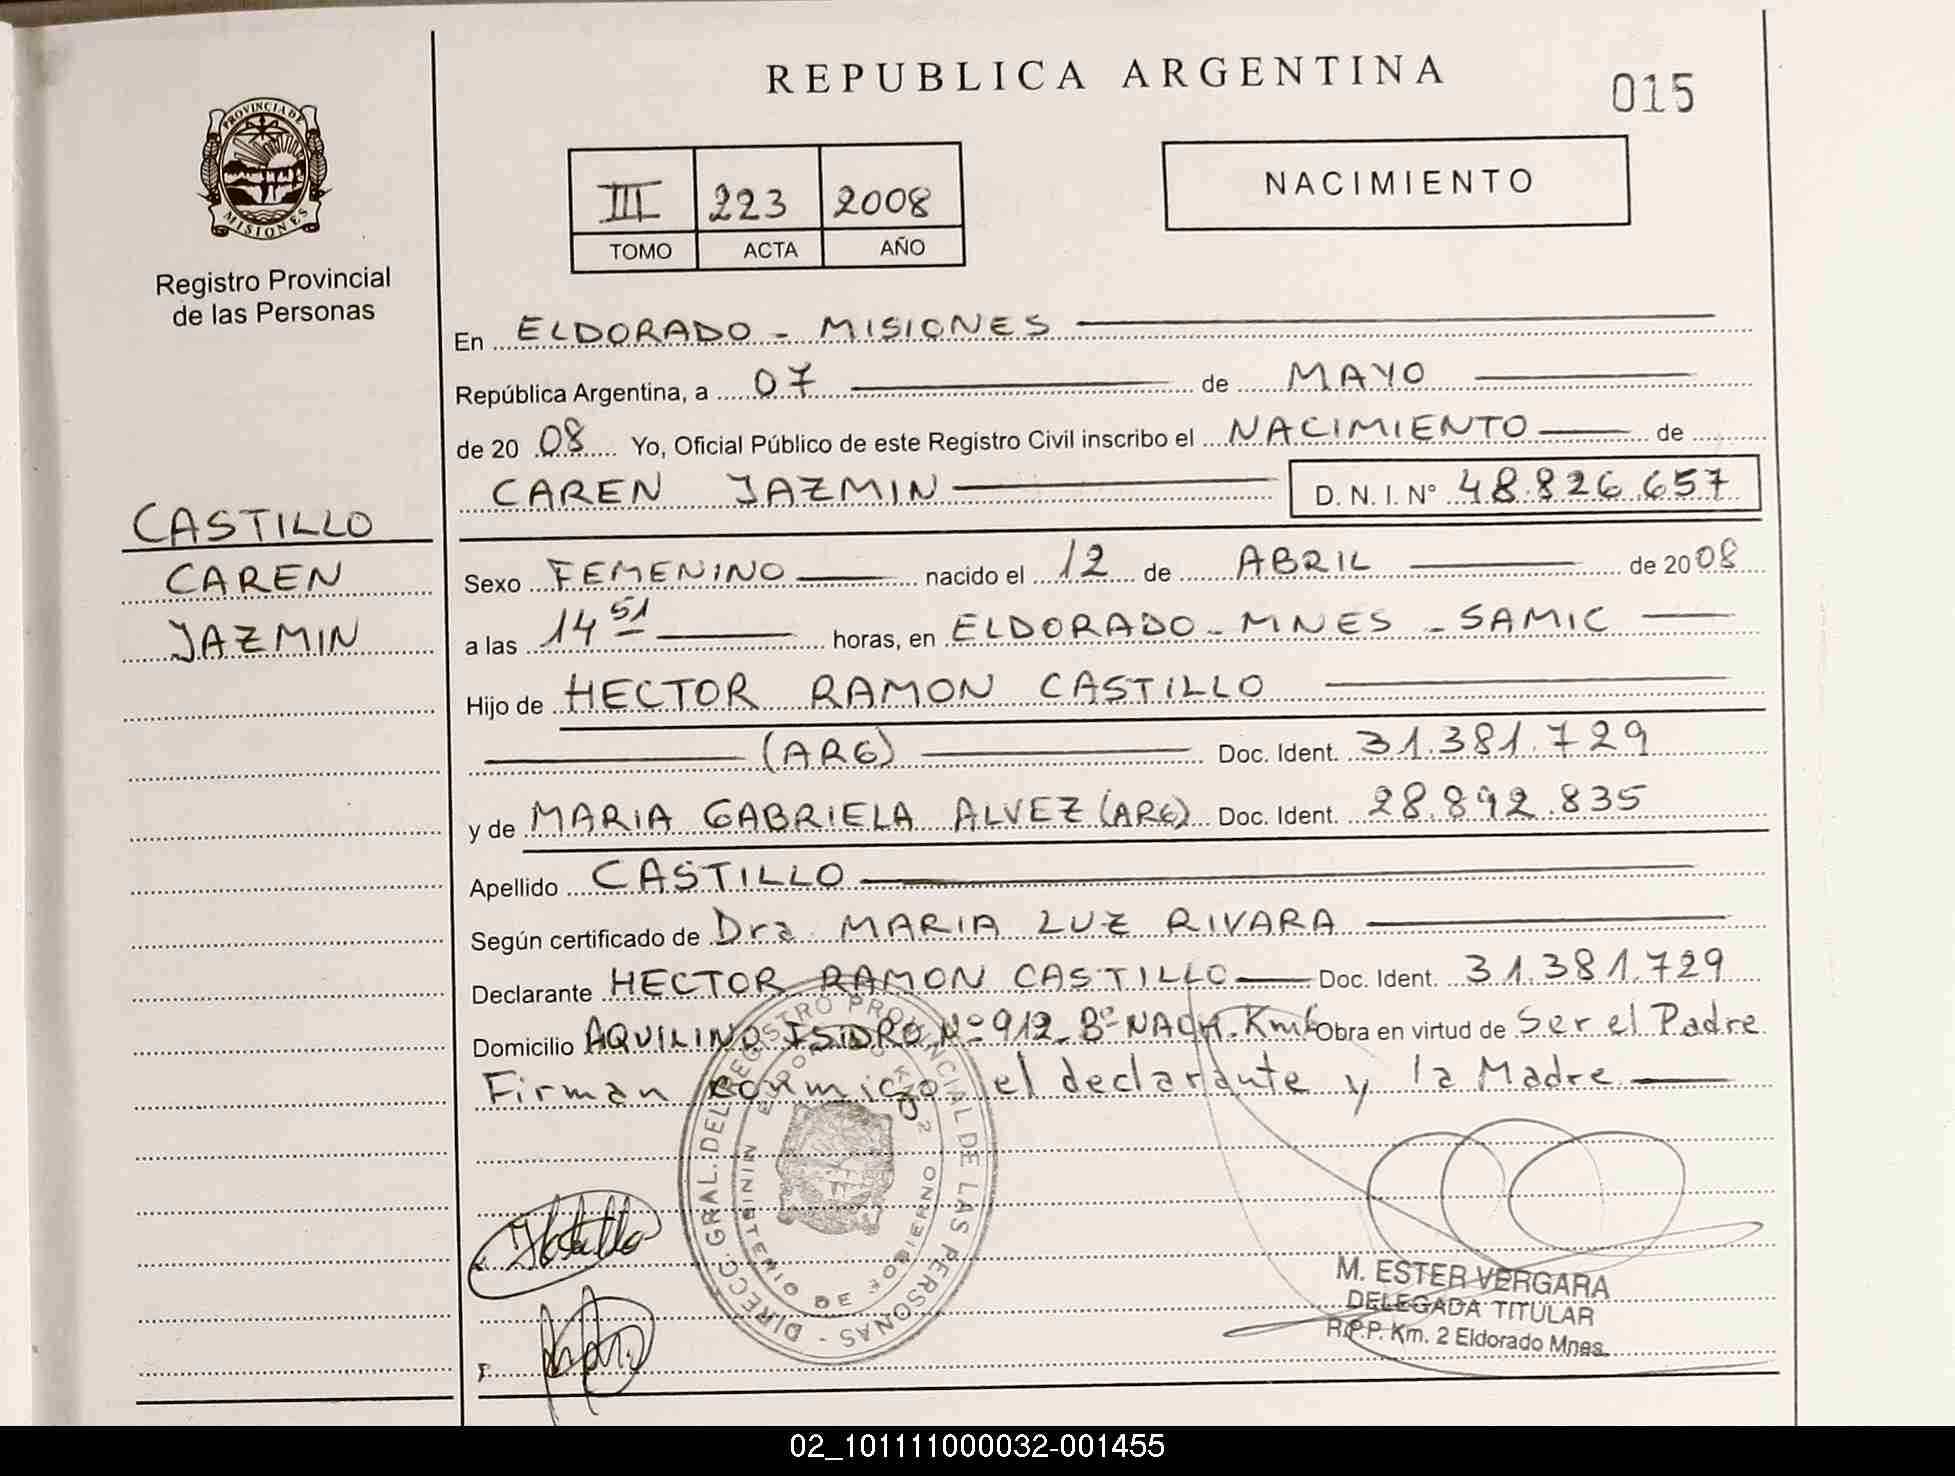 REPUBLICA ARGENTINA
015
PROVINCIA DE
MISIONES
Registro Provincial
de las Personas
III 223 2008
TOMO ACTA AÑO
NACIMIENTO
En ELDORADO - MISIONES
República Argentina, a 07 de MAYO
de 20 08 Yo, Oficial Público de este Registro Civil inscribo el NACIMIENTO de
CAREN JAZMIN D. N. I. Nº 48.826.657
CASTILLO
CAREN
JAZMIN
Sexo FEMENINO nacido el 12 de ABRIL de 2008
a las 14 51 horas, en ELDORADO - MNES - SAMIC
Hijo de HECTOR RAMON CASTILLO
(ARG) Doc. Ident. 31.381.729
y de MARIA GABRIELA ALVEZ (ARG) Doc. Ident. 28.892.835
Apellido CASTILLO
Según certificado de Dra. MARIA LUZ RIVARA
Declarante HECTOR RAMON CASTILLO Doc. Ident. 31.381.729
Domicilio AQUILINO ISIDRO Nº 912 Bº Km6 Obra en virtud de Ser el Padre
Firman conmigo el declarante y la Madre
DIRECC. GRAL. DEL REGISTRO PROVINCIAL DE LAS PERSONAS -
MINISTERIO DE GOBIERNO
M. ESTER VERGARA
DELEGADA TITULAR
R.P.P. Km. 2 Eldorado Mnes.
02_101111000032-001455